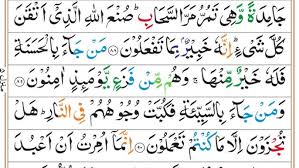 جَامِدَةً وَّهِيَ تَمُرُّ مَرَّ السَّحَابِ ؕ صُنْعَ اللّٰهِ الَّذِيْۤ اَتْقَنَ
كُلَّ شَيْءٍ ؕ اِنَّهٗ خَبِيْرٌۢ بِمَا تَفْعَلُوْنَ ۸۸ مَنْ جَآءَ بِالْحَسَنَةِ
فَلَهٗ خَيْرٌ مِّنْهَا ۚ وَهُمْ مِّنْ فَزَعٍ يَّوْمَئِذٍ اٰمِنُوْنَ ۸۹
وَمَنْ جَآءَ بِالسَّيِّئَةِ فَكُبَّتْ وُجُوْهُهُمْ فِي النَّارِ ؕ هَلْ
تُجْزَوْنَ اِلَّا مَا كُنْتُمْ تَعْمَلُوْنَ ۹۰ اِنَّمَاۤ اُمِرْتُ اَنْ اَعْبُدَ